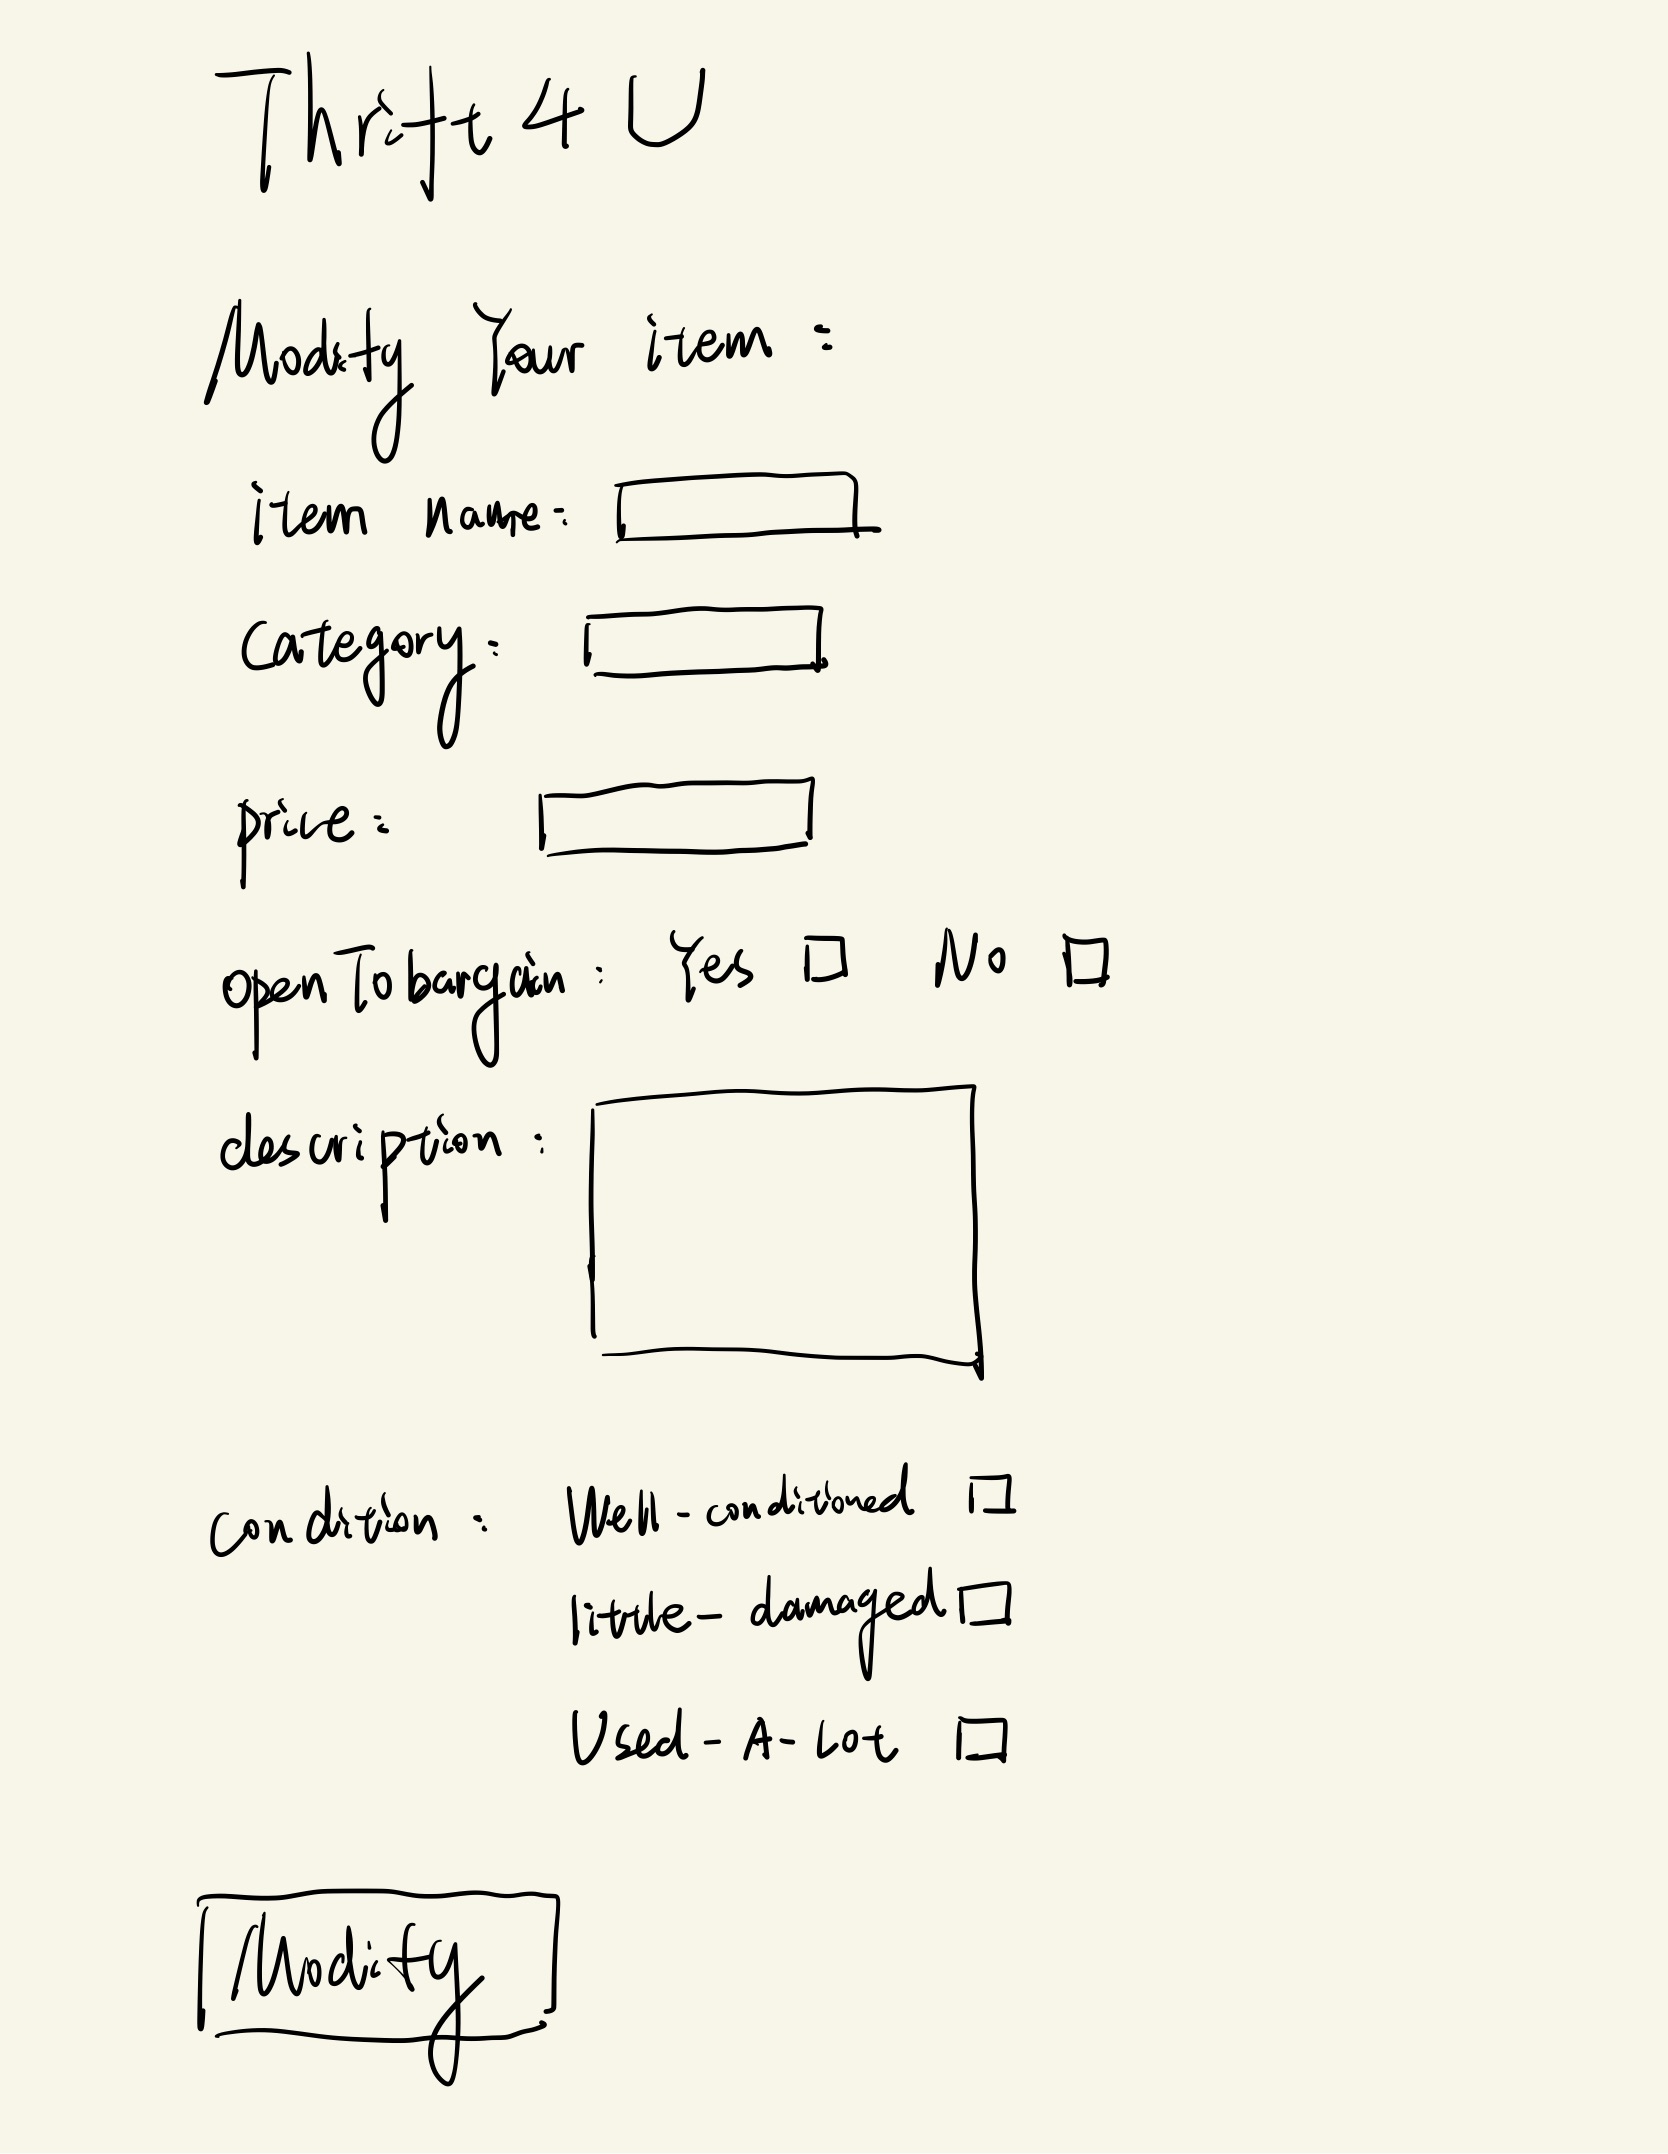 Thrift 4 U
Modify Your item :
item name :
Category :
price :
open To bargain : Yes No
description :
Condition : Well-conditioned
little-damaged
Used-A-Lot
Modify